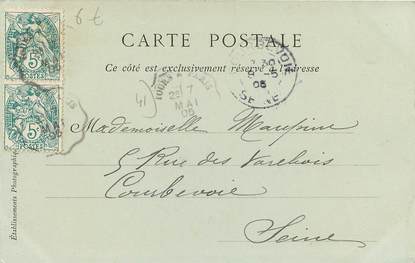 6 €
CARTE POSTALE
Ce côté est exclusivement réservé à l'adresse
5c
POSTES
5c
POSTES
41
7
MAI
05
05
SEINE
Mademoiselle
5 Rue des
Courbevoie
Seine
Établissements Photographiques